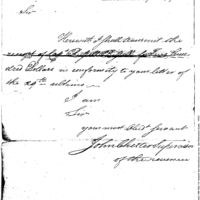 Sir
Herewith I shall transmit the
of Three hun
dred Dollars in conformity to your letter of
the 29th ultimo
I am
Sir
your most Obedt servant
John Chester Supervisor
of the revenue